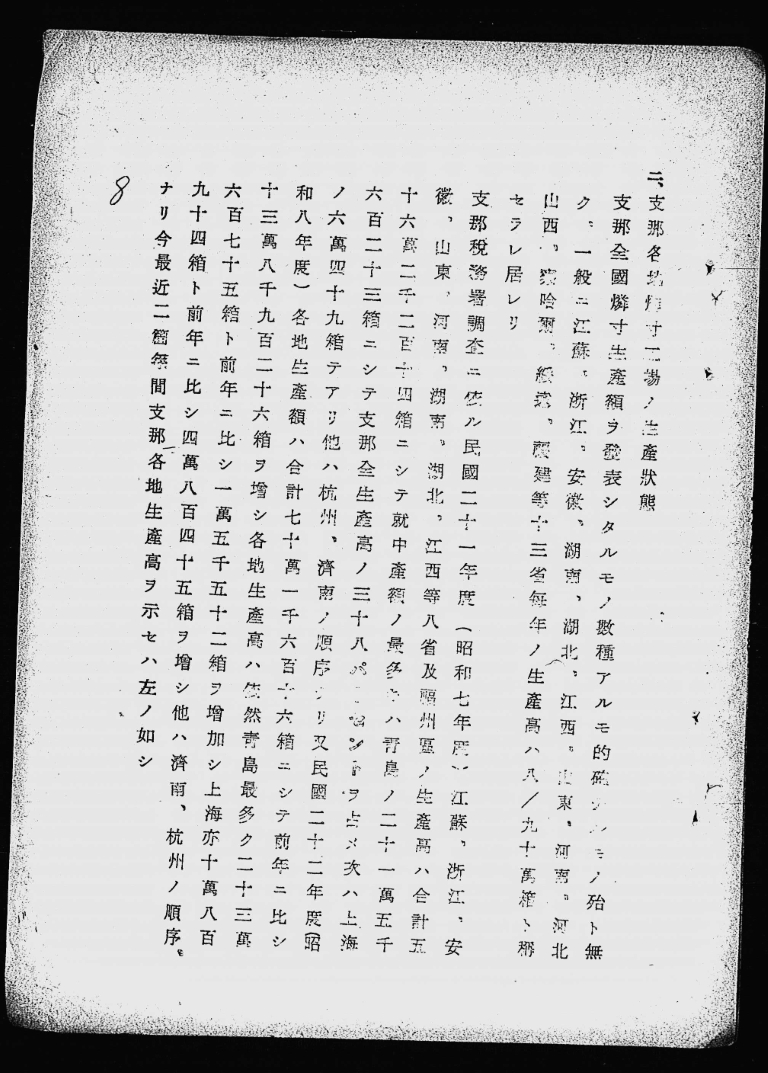 二、支那各地燐寸工場ノ生產狀態
支那全國燐寸生產額ヲ發表シタルモノ數種アルモ的確ナルモノ殆ト無
ク、一般ニ江蘇、浙江、安徽、湖南、湖北、江西、山東、河南、河北
山西、察哈爾、綏遠、福建等十三省每年ノ生產高ハ八/九十萬箱ト稱
セラレ居レリ
支那稅務署調查ニ依ル民國二十一年度(昭和七年度)江蘇、浙江、安
徽、山東、河南、湖南、湖北、江西等八省及福州區ノ生產高ハ合計五
十六萬二千二百十四箱ニシテ就中產額ノ最多キハ靑島ノ二十一萬五千
六百二十三箱ニシテ支那全生產高ノ三十八パーセントヲ占メ次ハ上海
ノ六萬四十九箱テアリ他ハ杭州、濟南ノ順序ナリ又民國二十二年度(昭
和八年度)各地生產額ハ合計七十萬一千六百十六箱ニシテ前年ニ比シ
十三萬八千九百二十六箱ヲ增シ各地生產高ハ依然靑島最多ク二十三萬
六百七十五箱ト前年ニ比シ一萬五千五十二箱ヲ增加シ上海亦十萬八百
九十四箱ト前年ニ比シ四萬八百四十五箱ヲ增シ他ハ濟南、杭州ノ順序
ナリ今最近二箇年間支那各地生產高ヲ示セハ左ノ如シ
8